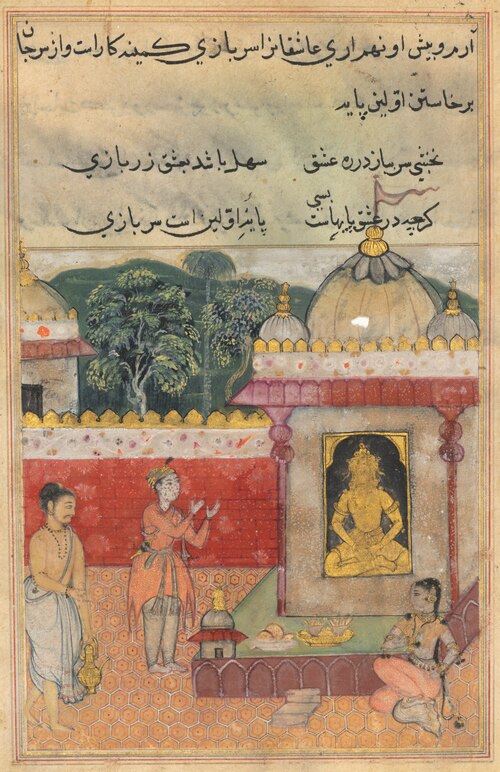 آرم و پیش او نهم اری عاشقانرا سربازی کمینه کار است و از سر جان
برخاستن اولین پایه
نخشبی سر بباز در ره عشق سهل باشد بعشق زر بازی
گرچه در عشق پایهاست بسی پایهٔ اولین است سر بازی